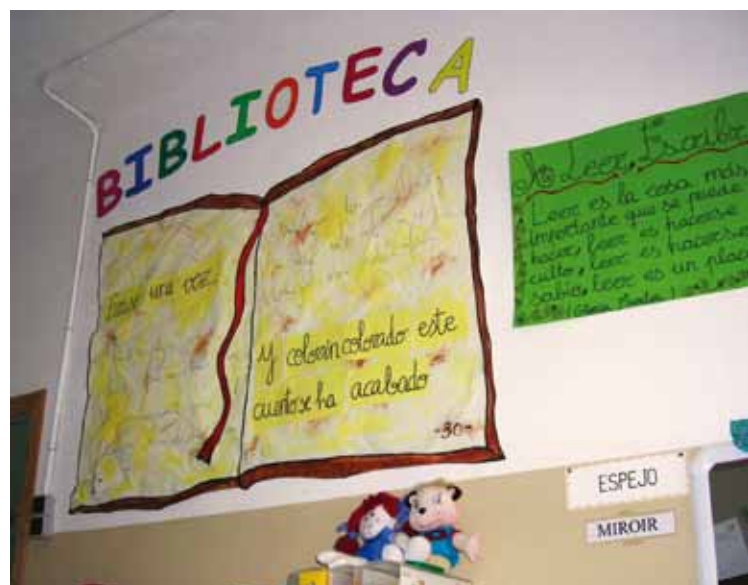 BIBLIOTECA
Erase una vez...
y colorin colorado este
cuento se ha acabado
-30-
Leer, Escribir
Leer es la cosa más
importante que se puede
hacer, leer es hacerse
culto, leer es hacerse
sabio, leer es un placer
ESPEJO
MIROIR